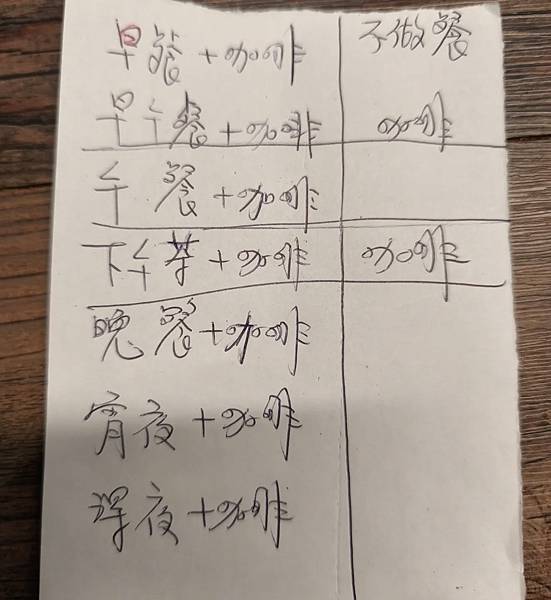 早餐+咖啡 不做餐
早午餐+咖啡 咖啡
午餐+咖啡
下午茶+咖啡 咖啡
晚餐+咖啡
宵夜+咖啡
深夜+咖啡